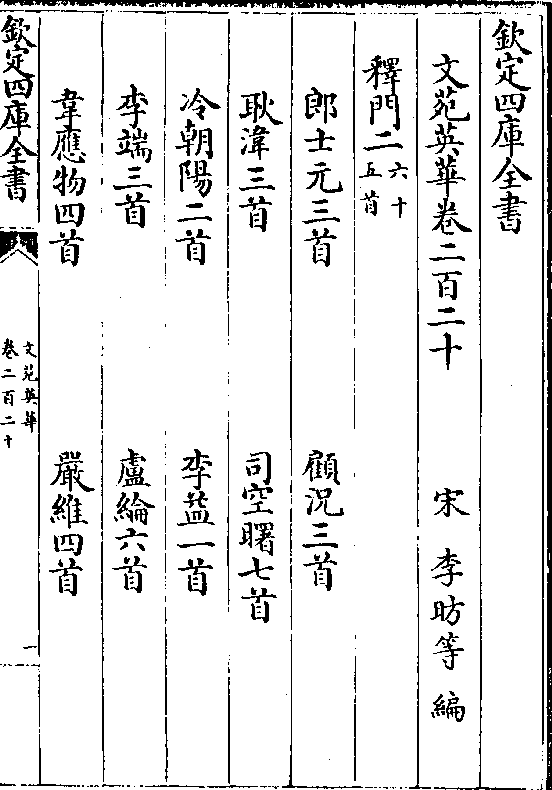 欽定四庫全書
文苑英華卷二百二十　宋　李昉等　編
釋門二六十五首
郎士元三首　顧況三首
耿湋三首　司空曙七首
冷朝陽二首　李益一首
李端三首　盧綸六首
韋應物四首　嚴維四首
欽定四庫全書
文苑英華
卷二百二十
一